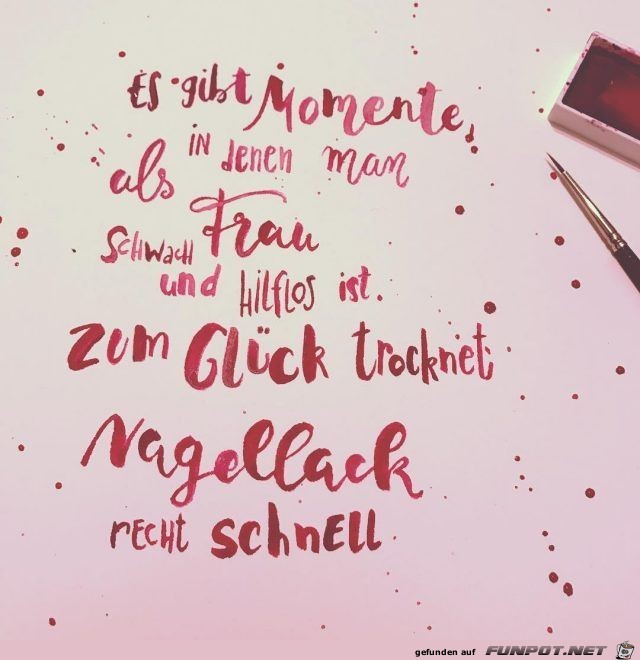 Es gibt Momente,
in denen man
als Frau
schwach
und hilflos ist.
Zum Glück trocknet
Nagellack
recht schnell.
gefunden auf FUNPOT.NET